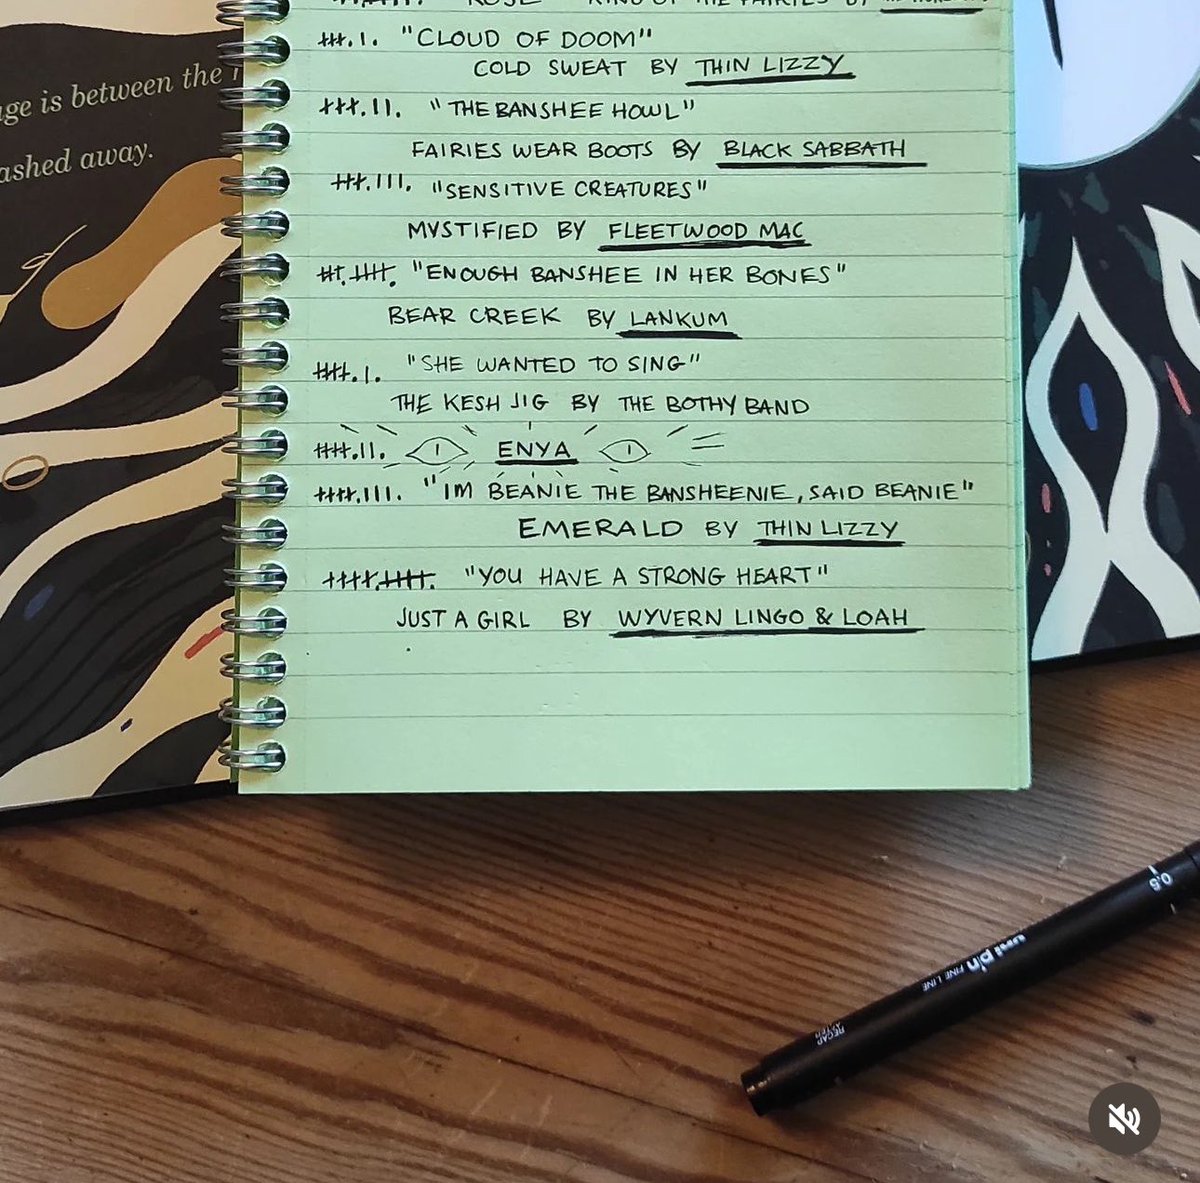 age is between the
ashed away.
ROSE KING OF THE FAIRIES BY
"CLOUD OF DOOM"
COLD SWEAT BY THIN LIZZY
II. "THE BANSHEE HOWL"
FAIRIES WEAR BOOTS BY BLACK SABBATH
III. "SENSITIVE CREATURES"
MYSTIFIED BY FLEETWOOD MAC
"ENOUGH BANSHEE IN HER BONES"
BEAR CREEK BY LANKUM
I. "SHE WANTED TO SING"
THE KESH JIG BY THE BOTHY BAND
II. ENYA
III. "IM BEANIE THE BANSHEENIE, SAID BEANIE"
EMERALD BY THIN LIZZY
"YOU HAVE A STRONG HEART"
JUST A GIRL BY WYVERN LINGO & LOAH
0.5
uni pin FINE LINE
RECAP
AFTER